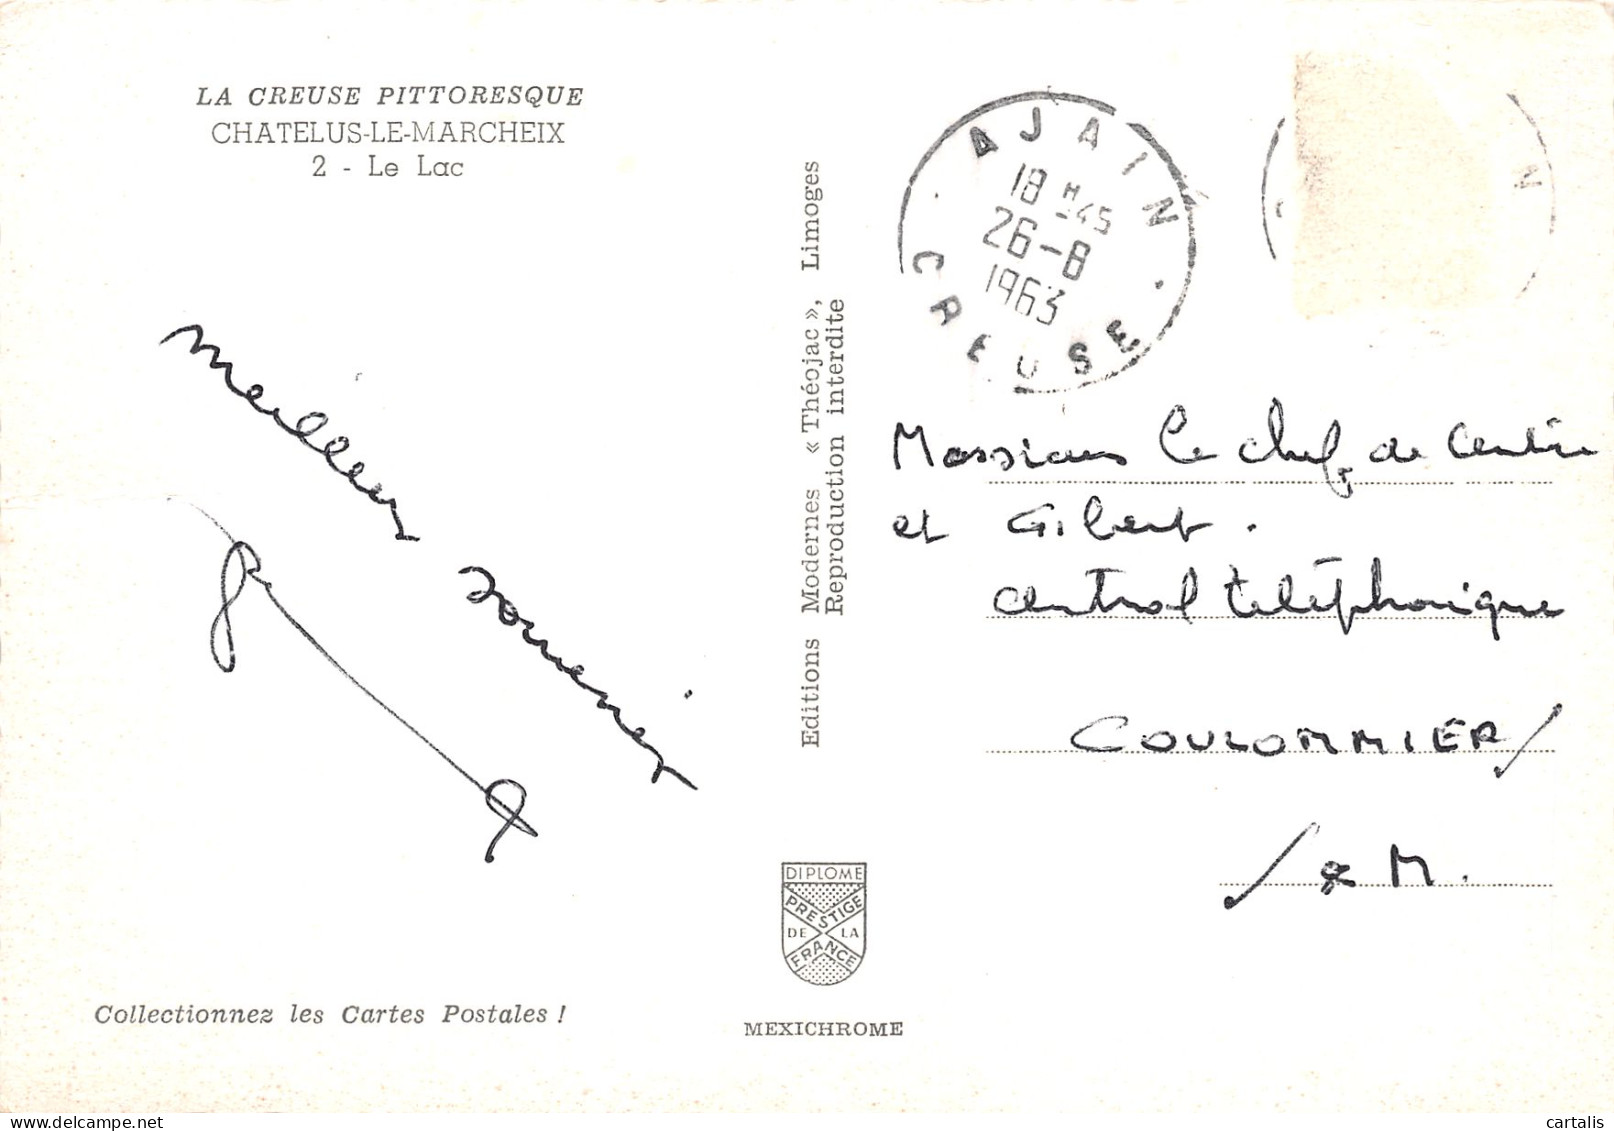 LA CREUSE PITTORESQUE
CHATELUS-LE-MARCHEIX
2 - Le Lac
Meilleurs souvenirs
Collectionnez les Cartes Postales !
Editions Modernes « Théojac », Limoges
Reproduction interdite
DIPLOME
PRESTIGE
DE LA
FRANCE
MEXICHROME
AJAIN
18 H45
26-8
1963
CREUSE
N
Messieurs le chef de centre
et Gilbert.
central téléphonique
COULOMMIERS
S & M.
cartalis